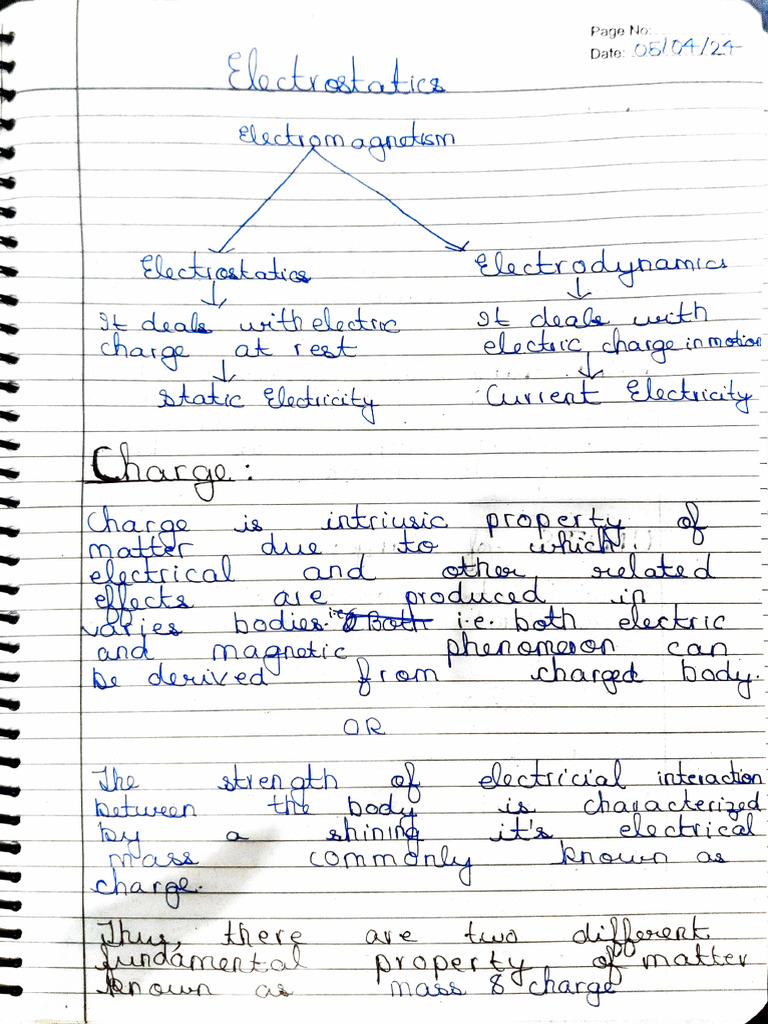 Page No:
Date: 05/04/24
Electrostatics
Electromagnetism
Electrostatics Electrodynamics
It deals with electric It deals with
charge at rest electric charge in motion
Static Electricity Current Electricity
Charge:
Charge is intriusic property of
matter due to which
electrical and other related
effects are produced in
varies bodies. i.e. Both i.e. both electric
and magnetic phenomenon can
be derived from charged body.
OR
The strength of electricial interaction
between the body is characterized
by a shining it's electrical
mass commonly known as
charge.
Thus, there are two different
fundamental property of matter
known as mass & charge